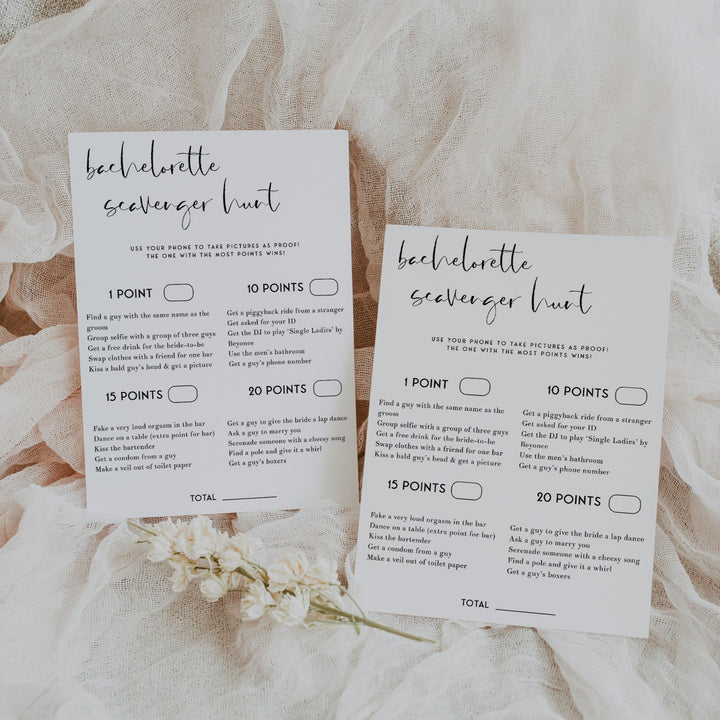 bachelorette
scavenger hunt
USE YOUR PHONE TO TAKE PICTURES AS PROOF!
THE ONE WITH THE MOST POINTS WINS!
1 POINT
Find a guy with the same name as the
groom
Group selfie with a group of three guys
Get a free drink for the bride-to-be
Swap clothes with a friend for one bar
Kiss a bald guy's head & get a picture
10 POINTS
Get a piggyback ride from a stranger
Get asked for your ID
Get the DJ to play 'Single Ladies' by
Beyonce
Use the men's bathroom
Get a guy's phone number
15 POINTS
Fake a very loud orgasm in the bar
Dance on a table (extra point for bar)
Kiss the bartender
Get a condom from a guy
Make a veil out of toilet paper
20 POINTS
Get a guy to give the bride a lap dance
Ask a guy to marry you
Serenade someone with a cheesy song
Find a pole and give it a whirl
Get a guy's boxers
TOTAL
bachelorette
scavenger hunt
USE YOUR PHONE TO TAKE PICTURES AS PROOF!
THE ONE WITH THE MOST POINTS WINS!
1 POINT
Find a guy with the same name as the
groom
Group selfie with a group of three guys
Get a free drink for the bride-to-be
Swap clothes with a friend for one bar
Kiss a bald guy's head & get a picture
10 POINTS
Get a piggyback ride from a stranger
Get asked for your ID
Get the DJ to play 'Single Ladies' by
Beyonce
Use the men's bathroom
Get a guy's phone number
15 POINTS
Fake a very loud orgasm in the bar
Dance on a table (extra point for bar)
Kiss the bartender
Get a condom from a guy
Make a veil out of toilet paper
20 POINTS
Get a guy to give the bride a lap dance
Ask a guy to marry you
Serenade someone with a cheesy song
Find a pole and give it a whirl
Get a guy's boxers
TOTAL